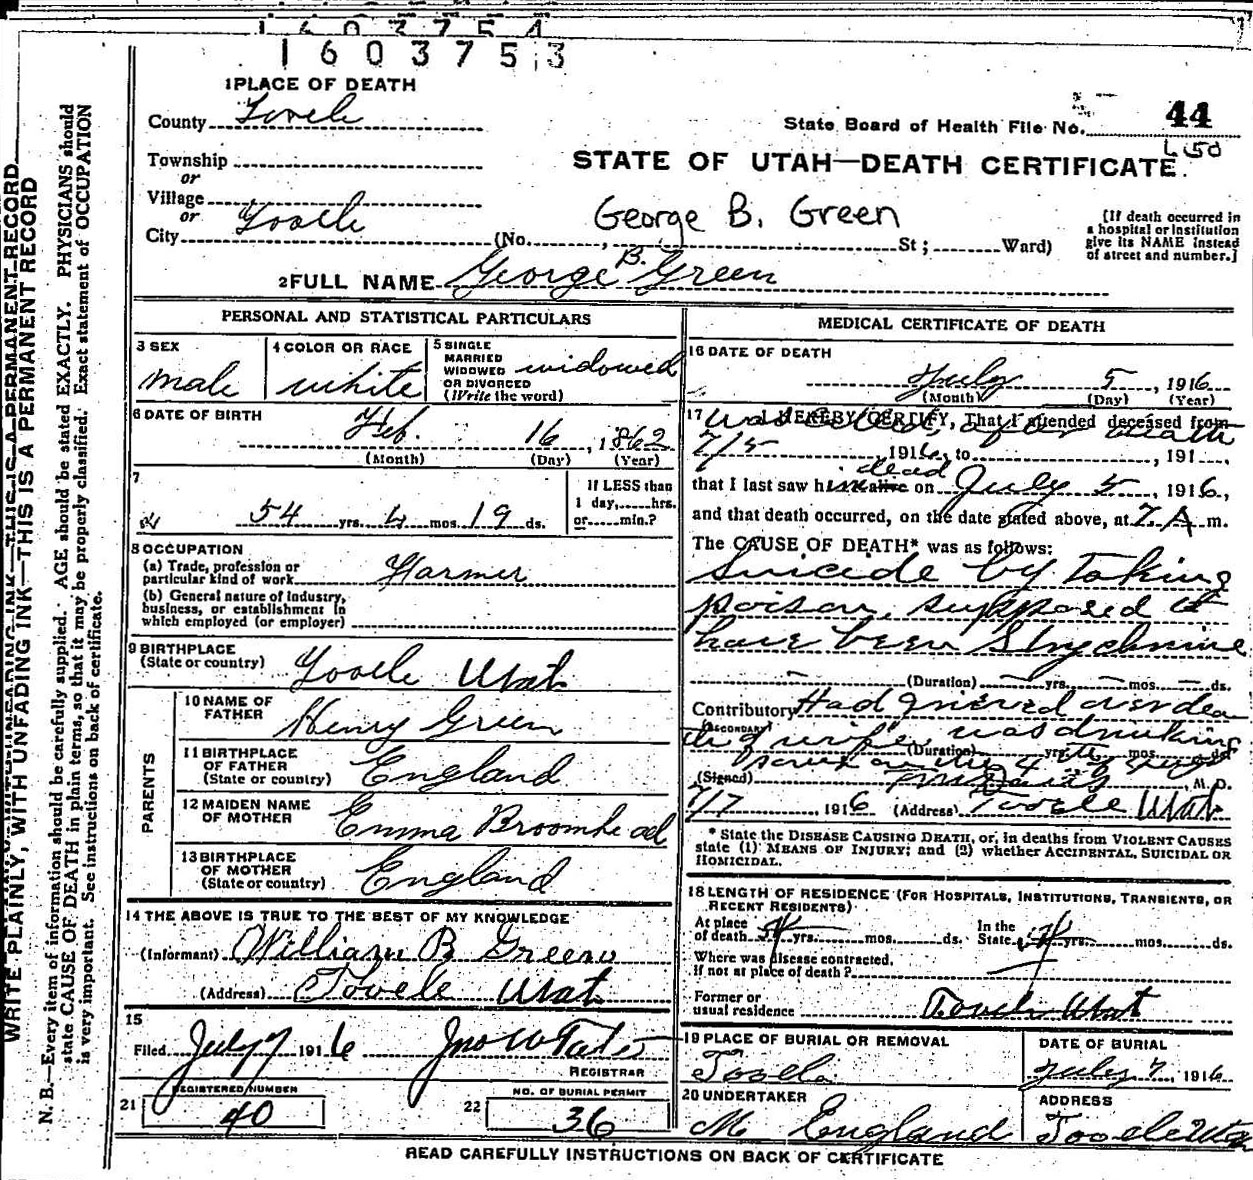 1603754
1603753
1 PLACE OF DEATH
County Tooele
State Board of Health File No. 44
Township
or
STATE OF UTAH—DEATH CERTIFICATE.
Village
or
City Tooele (No. , St ; Ward)
George B. Green
[If death occurred in
a hospital or institution
give its NAME instead
of street and number.]
2 FULL NAME George B. Green
PERSONAL AND STATISTICAL PARTICULARS
3 SEX
male
4 COLOR OR RACE
white
5 SINGLE
MARRIED
WIDOWED
OR DIVORCED
(Write the word)
widowed
6 DATE OF BIRTH
Feb. 16, 1862
(Month) (Day) (Year)
7
54 yrs. 4 mos. 19 ds.
If LESS than
1 day,......hrs.
or......min.?
8 OCCUPATION
(a) Trade, profession or
particular kind of work Farmer
(b) General nature of industry,
business, or establishment in
which employed (or employer)
9 BIRTHPLACE
(State or country) Tooele Utah
PARENTS
10 NAME OF
FATHER Henry Green
11 BIRTHPLACE
OF FATHER
(State or country) England
12 MAIDEN NAME
OF MOTHER Emma Broomhead
13 BIRTHPLACE
OF MOTHER
(State or country) England
14 THE ABOVE IS TRUE TO THE BEST OF MY KNOWLEDGE
(Informant) William B Green
(Address) Tooele Utah
15
Filed July 7 1916 Jno W Tate
REGISTRAR
21 REGISTERED NUMBER
40
22 NO. OF BURIAL PERMIT
36
MEDICAL CERTIFICATE OF DEATH
16 DATE OF DEATH
July 5, 1916
(Month) (Day) (Year)
17 I HEREBY CERTIFY, That I attended deceased from
was after death
7/5, 1916, to , 191
that I last saw him alive dead on July 5, 1916,
and that death occurred, on the date stated above, at 7 A. m.
The CAUSE OF DEATH* was as follows:
Suicide by taking
poison, supposed to
have been Strychnine
(Duration) yrs. mos. ds.
Contributory Had grieved over dea
(SECONDARY)
th of wife, was drinking
(Duration) yrs. mos. ds.
on the 4th of July
(Signed) , M. D.
7/7, 1916 (Address) Tooele Utah
* State the DISEASE CAUSING DEATH, or, in deaths from VIOLENT CAUSES
state (1) MEANS OF INJURY; and (2) whether ACCIDENTAL, SUICIDAL OR
HOMICIDAL.
18 LENGTH OF RESIDENCE (FOR HOSPITALS, INSTITUTIONS, TRANSIENTS, OR
RECENT RESIDENTS)
At place
of death 54 yrs. mos. ds.
In the
State 54 yrs. mos. ds.
Where was disease contracted,
if not at place of death?
Former or
usual residence Tooele Utah
19 PLACE OF BURIAL OR REMOVAL
Tooele
DATE OF BURIAL
July 7, 1916
20 UNDERTAKER
M England
ADDRESS
Tooele Uta
READ CAREFULLY INSTRUCTIONS ON BACK OF CERTIFICATE
WRITE PLAINLY, WITH UNFADING INK—THIS IS A PERMANENT RECORD
N. B.—Every item of information should be carefully supplied. AGE should be stated EXACTLY. PHYSICIANS should
state CAUSE OF DEATH in plain terms, so that it may be properly classified. Exact statement of OCCUPATION
is very important. See instructions on back of certificate.